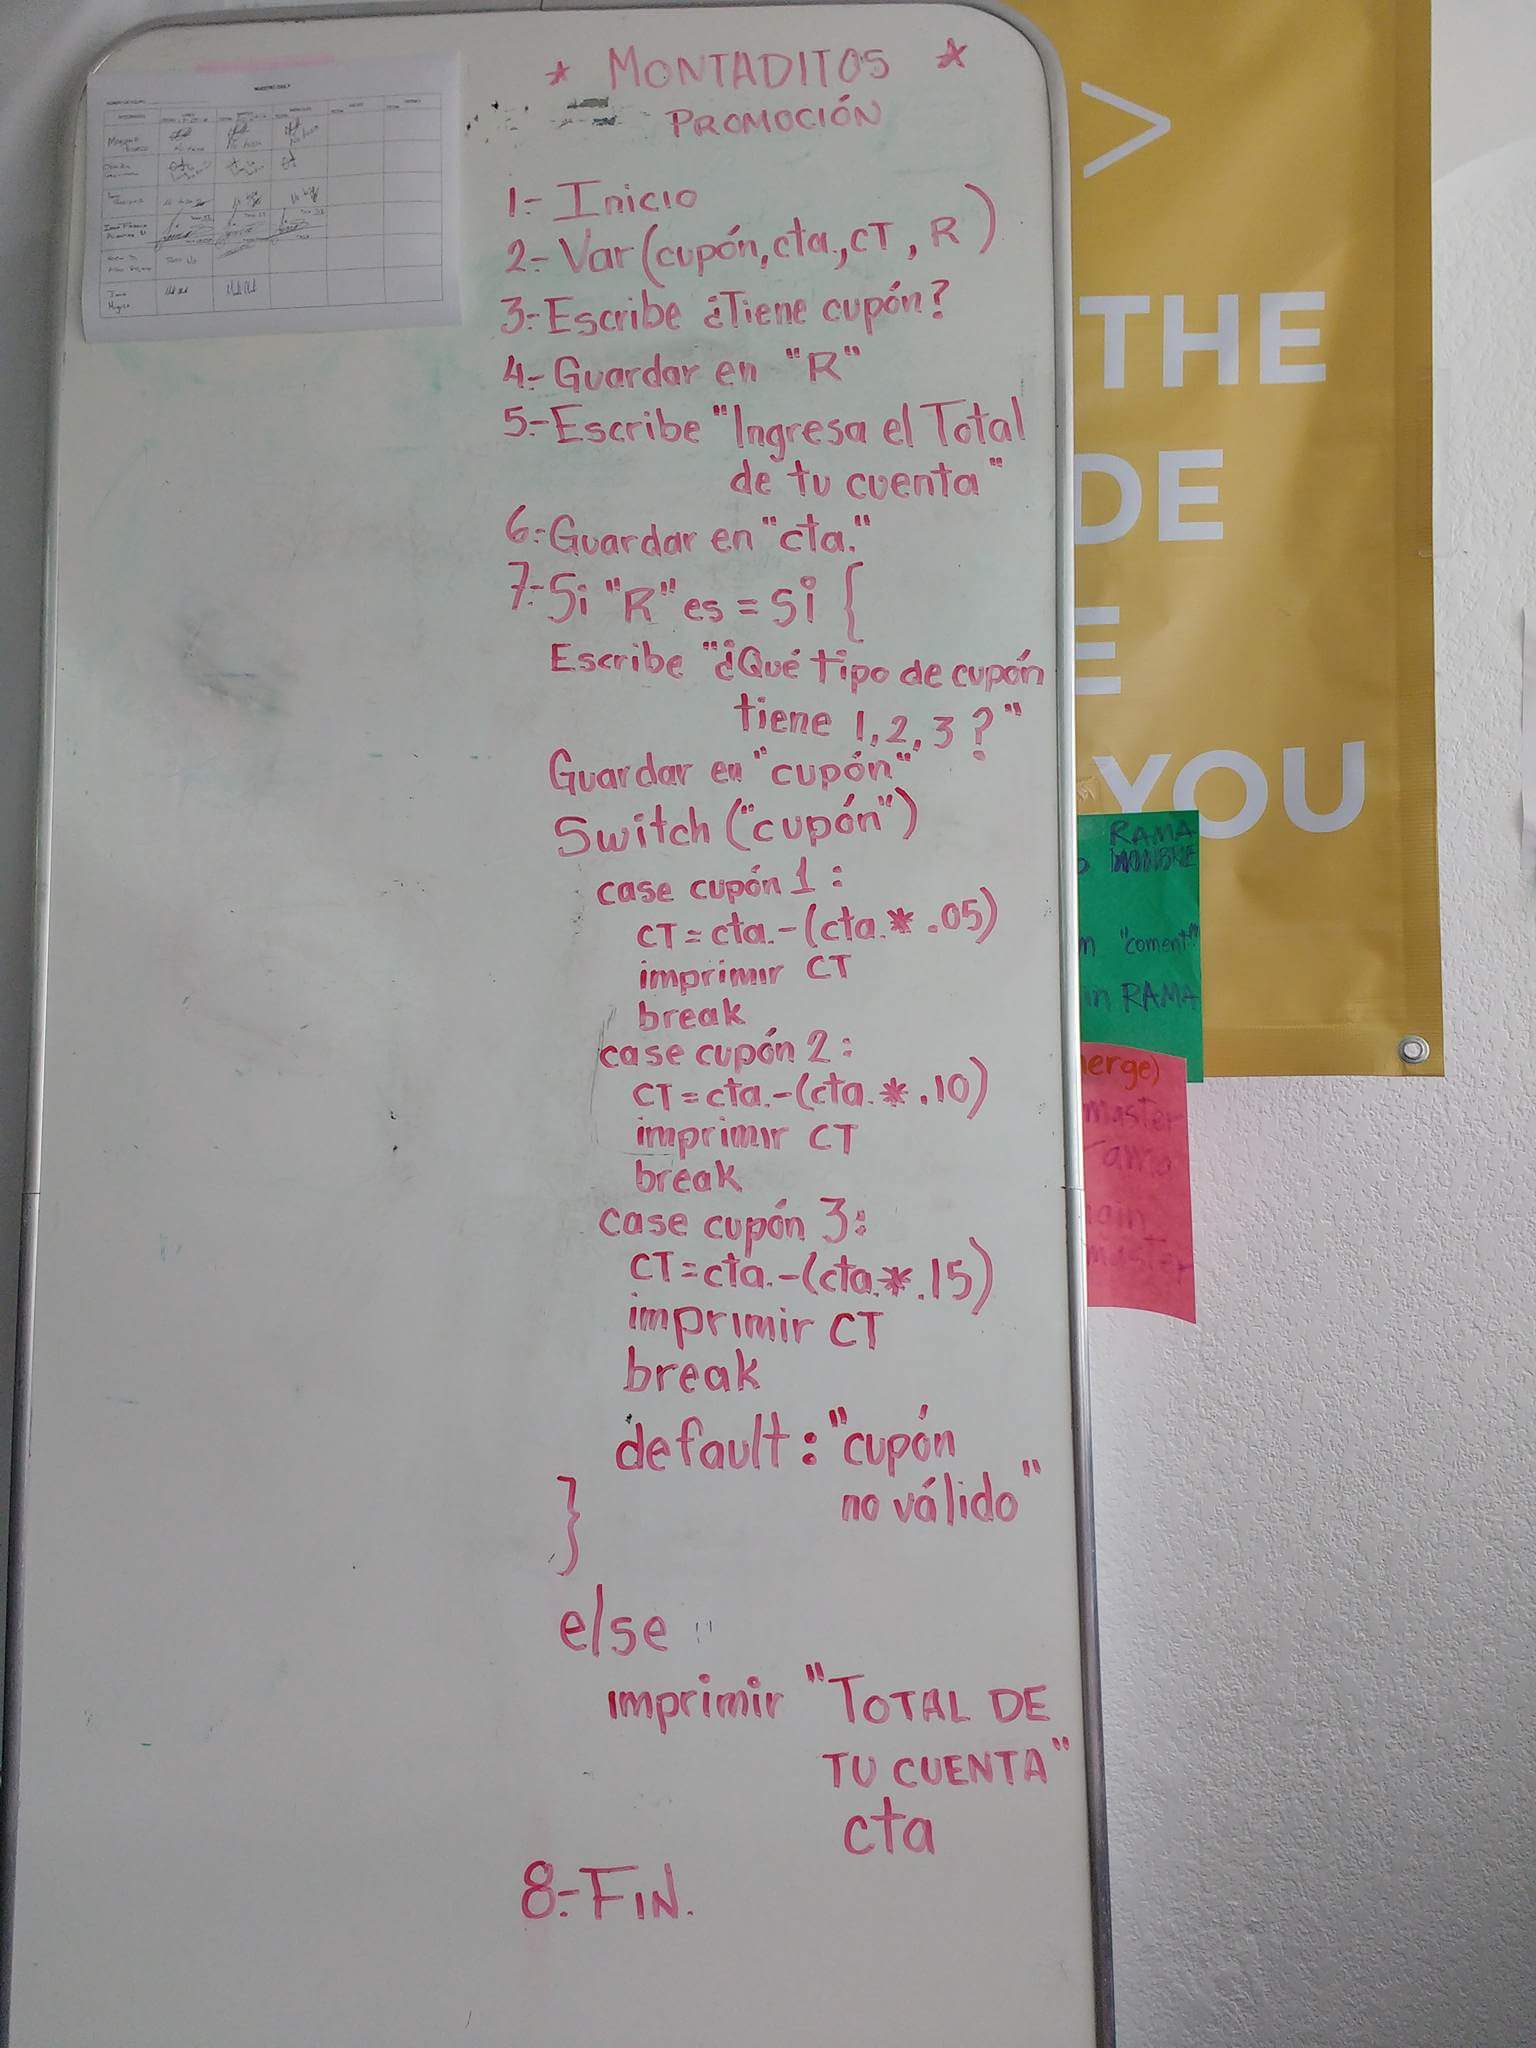 * MONTADITOS *
PROMOCIÓN
1.- Inicio
2.- Var (cupón, cta., CT, R)
3.- Escribe ¿Tiene cupón?
4.- Guardar en "R"
5.- Escribe "Ingresa el Total
de tu cuenta"
6.- Guardar en "cta."
7.- Si "R" es = si {
Escribe "¿Qué tipo de cupón
tiene 1, 2, 3 ?"
Guardar en "cupón"
Switch ("cupón")
case cupón 1 :
CT = cta. - (cta. * .05)
imprimir CT
break
case cupón 2 :
CT = cta. - (cta. * .10)
imprimir CT
break
case cupón 3 :
CT = cta. - (cta. * .15)
imprimir CT
break
default : "cupón
no válido"
}
else
imprimir "TOTAL DE
TU CUENTA"
cta
8.- FIN.
>
THE
DE
E
YOU
RAMA
NOMBRE
"coment"
in RAMA
erge)
master
rama
ain
master